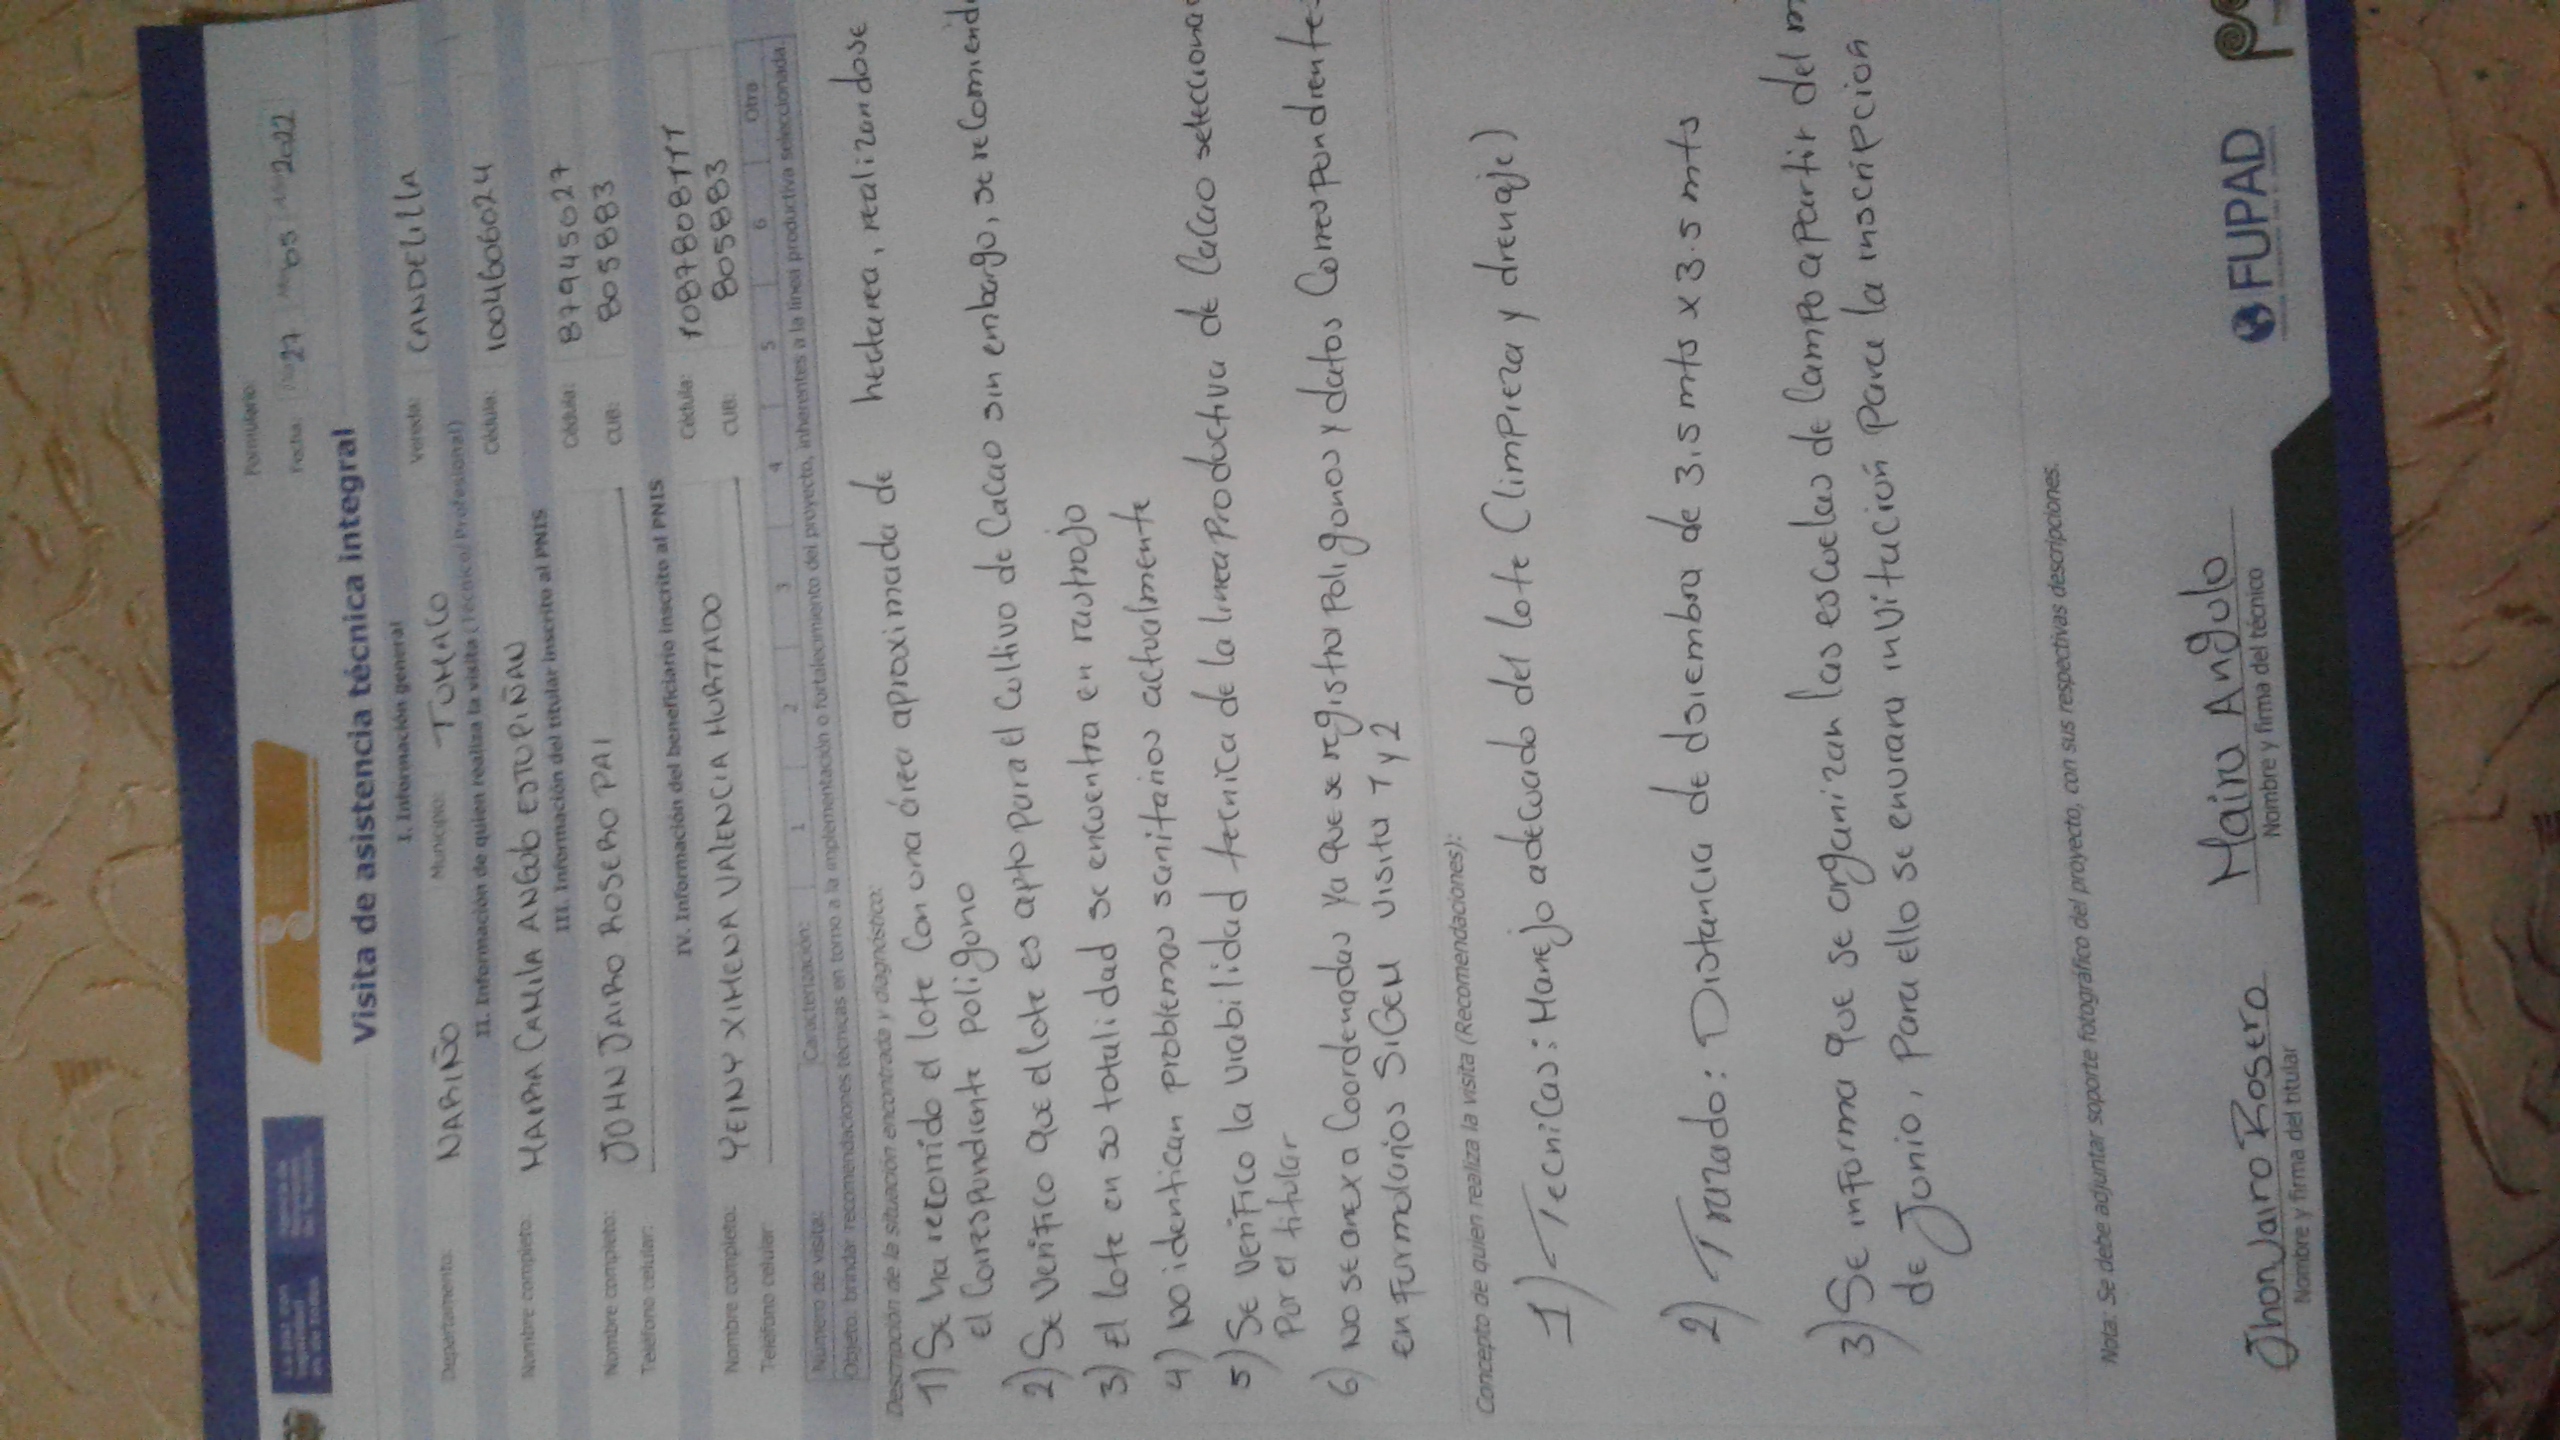 Formulario:
Fecha: Día 27 Mes 05 Año 2022
Visita de asistencia técnica integral
I. Información general
Departamento: NARIÑO Municipio: TUMACO Vereda: CANDELILLA
II. Información de quien realiza la visita (Técnico/ Profesional)
Nombre completo: MAIRA CAMILA ANGULO ESTUPIÑAN Cédula: 1004606024
III. Información del titular inscrito al PNIS
Nombre completo: JOHN JAIRO ROSERO PAI Cédula: 87945027
Teléfono celular: CUB: 805883
IV. Información del beneficiario inscrito al PNIS
Nombre completo: YEINY XIMENA VALENCIA HURTADO Cédula: 1087808111
Teléfono celular CUB: 805883
Número de visita: Caracterización: 1 2 3 4 5 6 Otra
Objeto: brindar recomendaciones técnicas en torno a la implementación o fortalecimiento del proyecto, inherentes a la línea productiva seleccionada.
Descripción de la situación encontrada y diagnóstico:
1) Se ha recorrido el lote con una área aproximada de hectarea, realizandose
el Corespondiente poligono
2) Se Verifico que el lote es apto para el Cultivo de Cacao sin embargo, se recomiend
3) El lote en su totalidad se encuentra en rastrojo
4) No identican problemas sanitarios actualmente
5) Se Verifico la viabilidad tecnica de la linea Productiva de Cacao selecciona
Por el titular
6) No se anexa Coordenadas ya que se registra poligonos y datos Correspondiente
en Formularios SiGeM visita 1 y 2
Concepto de quien realiza la visita (Recomendaciones):
1) Tecnicas: Manejo adecuado del lote (limpieza y drenaje)
2) Trazado: Distancia de dsiembra de 3.5 mts x 3.5 mts
3) Se informa que se organizan las escuelas de Campo apartir del m
de Junio, Para ello se enviara invitación Para la inscripcion
Nota: Se debe adjuntar soporte fotográfico del proyecto, con sus respectivas descripciones.
Jhon Jairo Rosero Maira Angulo
Nombre y firma del titular Nombre y firma del técnico
FUPAD